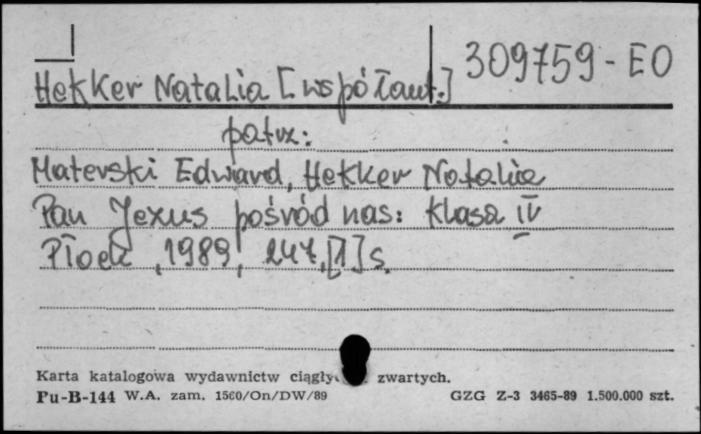 309759-EO
Hekker Natalia [współaut.]
patrz:
Materski Edward, Hekker Natalia
Pan Jezus pośród nas: Klasa IV
Płock, 1989, 247,[1]s.
Karta katalogowa wydawnictw zwartych.
Pu-B-144 W.A. zam. 1560/On/DW/89 GZG Z-3 3465-89 1.500.000 szt.